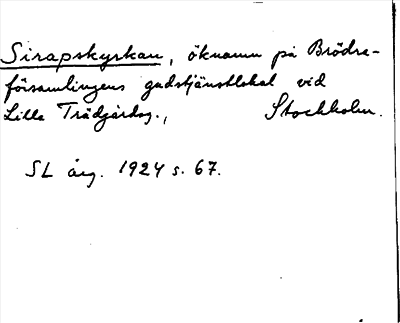 Sirapskyrkan, öknamn på Brödra-
församlingens gudstjänstlokal vid
Lilla Trädgårdsg., Stockholm.
SL årg. 1924 s. 67.